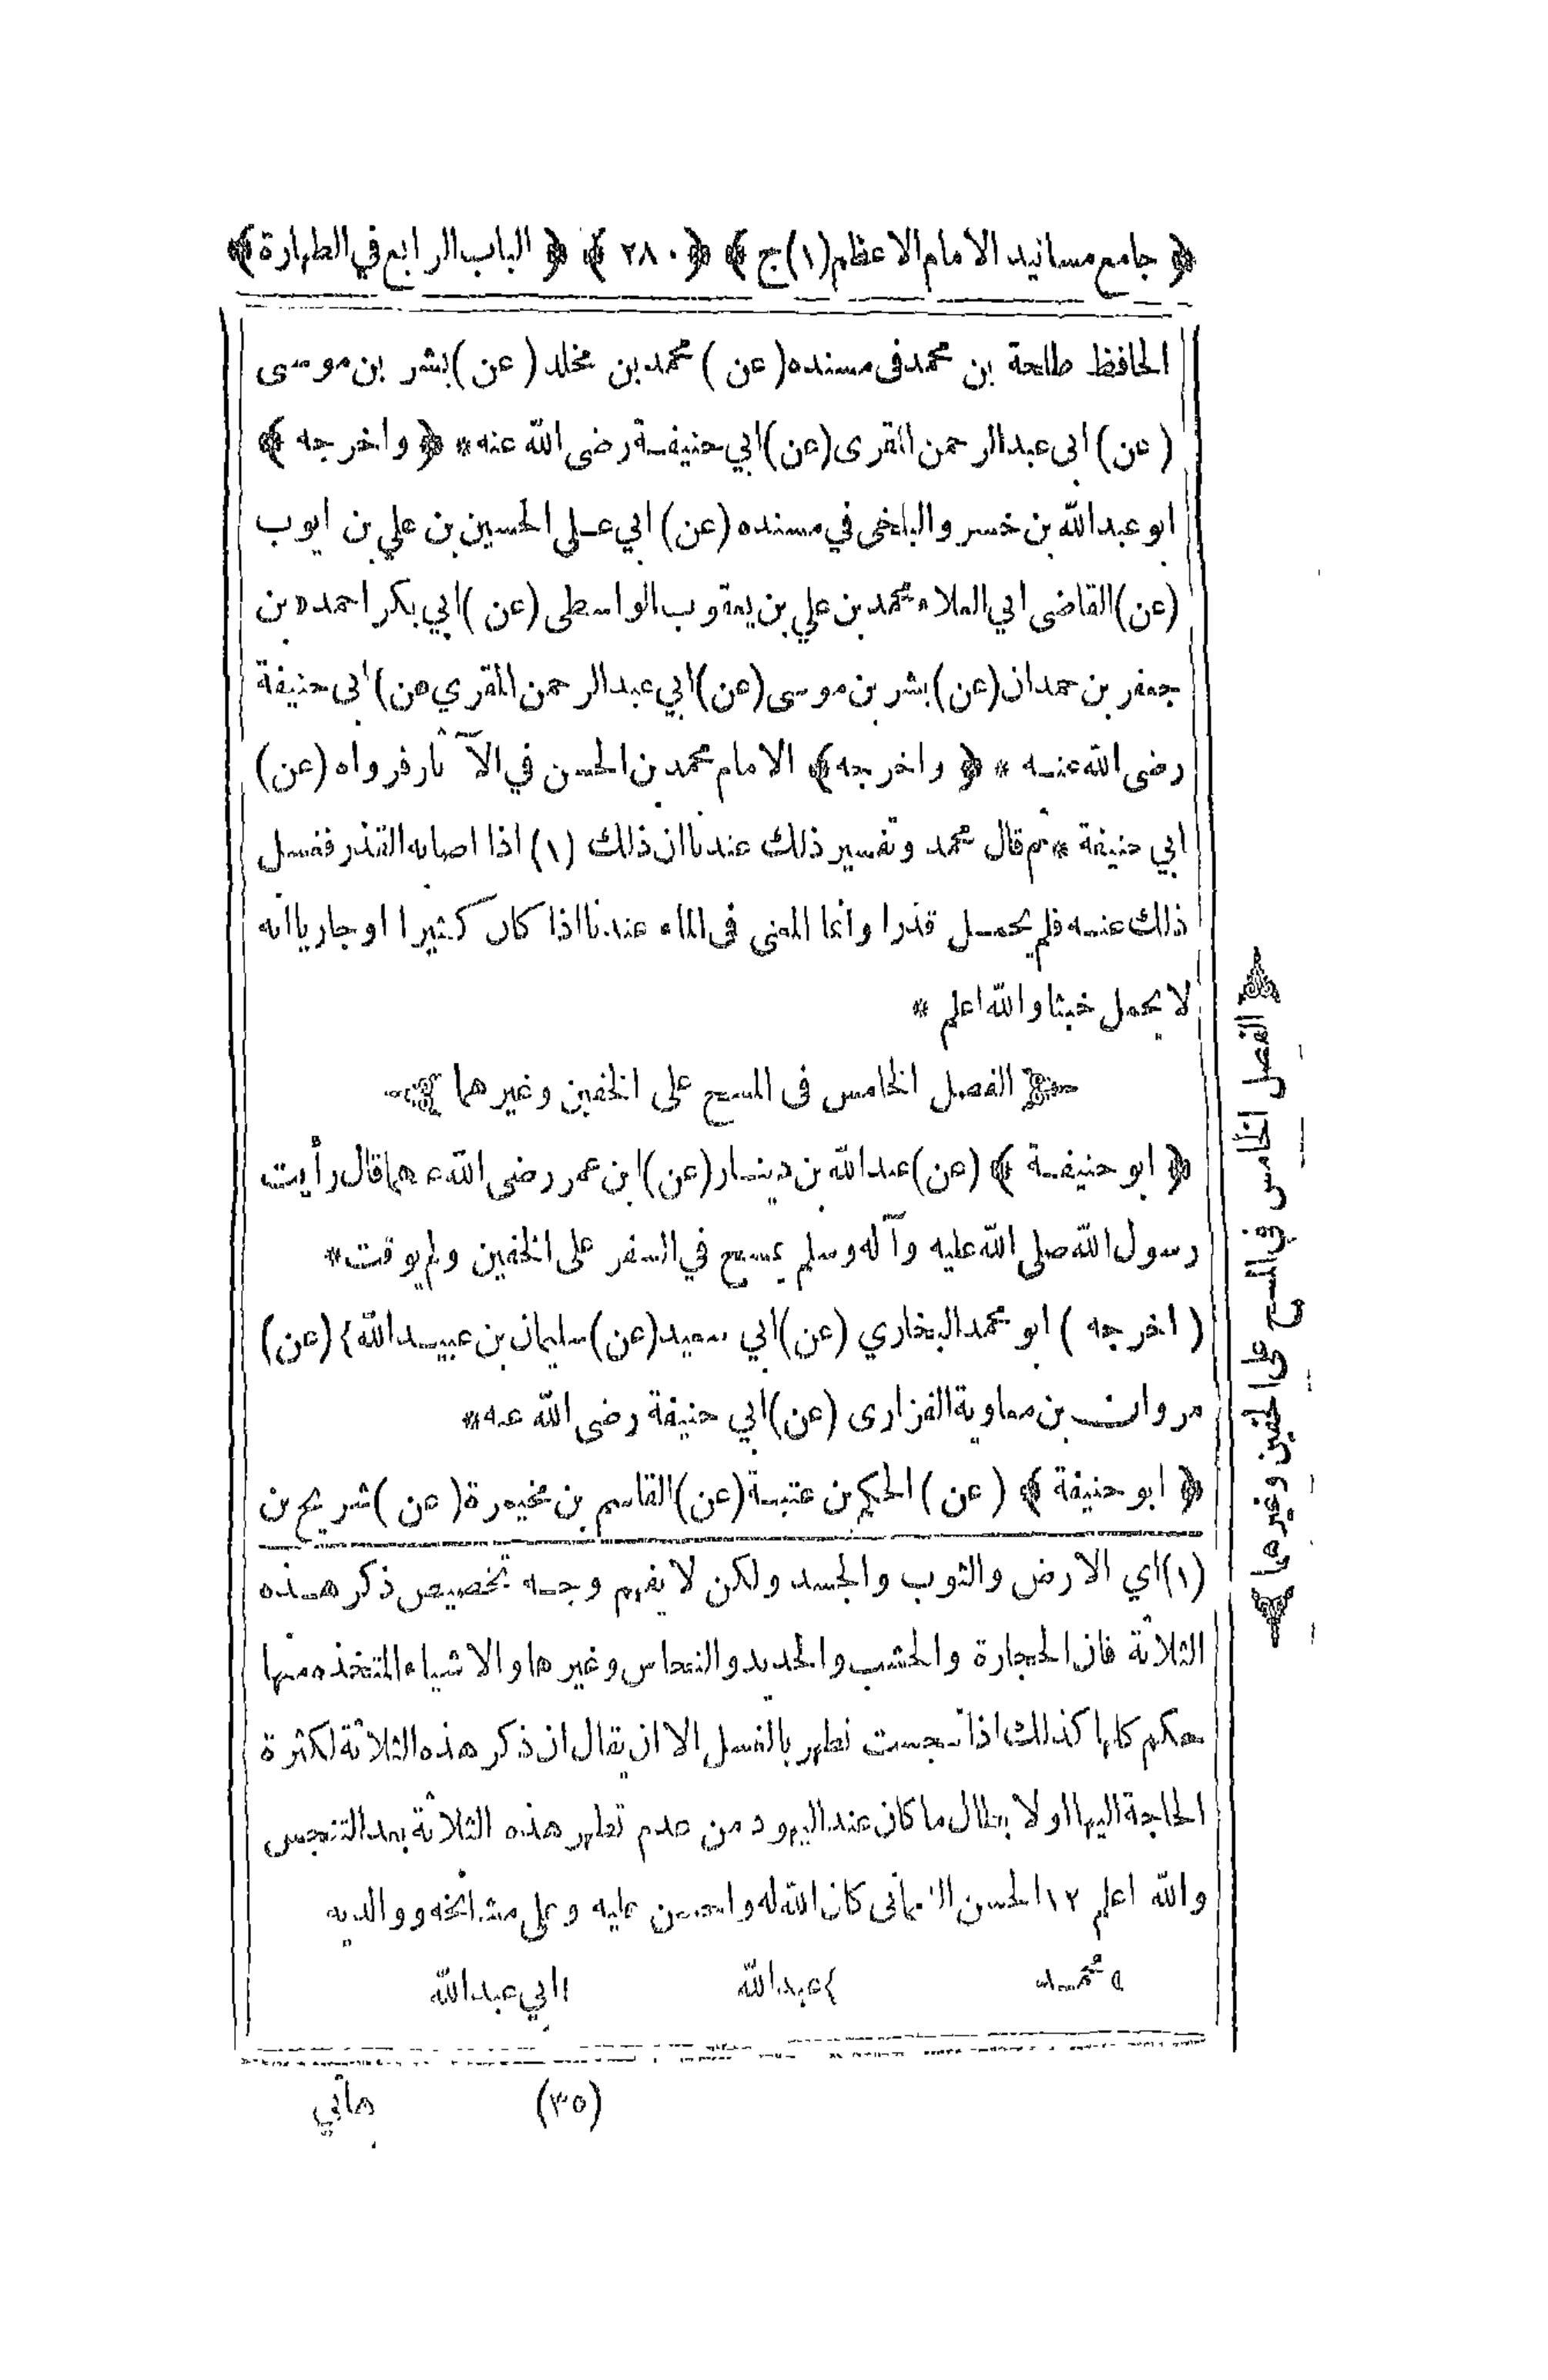 ﴿ جامع مسانيد الامام الاعظم (١) ج ﴾ ﴿ ٢٨٠ ﴾ ﴿ الباب الرابع في الطهارة ﴾
الحافظ طلحة بن محمد فى مسنده ( عن ) محمد بن مخلد ( عن ) بشر بن موسى
( عن ) ابى عبد الرحمن المقرى (عن) ابي حنيفة رضى الله عنه * ﴿ واخرجه ﴾
ابو عبد الله بن خسرو البلخى في مسنده (عن) ابي علي الحسين بن علي بن ايوب
(عن) القاضى ابي العلاء محمد بن علي بن يعقوب الواسطى (عن) ابي بكر احمد ه بن
جعفر بن حمدان (عن) بشر بن موسى (عن) ابي عبد الرحمن المقري عن) ابى حنيفة
رضى الله عنه * ﴿ واخرجه ﴾ الامام محمد بن الحسن في الآثار فرواه (عن)
ابي حنيفة * ثم قال محمد وتفسير ذلك عندنا ان ذلك (١) اذا اصابه القذر فغسل
ذلك عنه فلم يحمل قذرا وانما المعنى فى الماء عندنا اذا كان كثيرا او جاريا انه
لا يحمل خبثا والله اعلم *
الفصل الخامس فى المسح على الخفين وغيرهما
﴿ ابو حنيفة ﴾ (عن) عبد الله بن دينار (عن) ابن عمر رضى الله عنهما قال رأيت
رسول الله صلى الله عليه وآله وسلم يمسح في السفر على الخفين ولم يوقت *
( اخرجه ) ابو محمد البخاري (عن) ابي سعيد (عن) سليمان بن عبيد الله ٤ (عن)
مروان بن معاوية الفزارى (عن) ابي حنيفة رضى الله عنه *
﴿ ابو حنيفة ﴾ ( عن ) الحكم بن عتيبة (عن) القاسم بن مخيمرة ( عن ) شريح بن
(١) اي الارض والثوب والجسد ولكن لا يفهم وجه تخصيص ذكر هذه
الثلاثة فان الحجارة والخشب والحديد والنحاس وغيرها والاشياء المتخذه منها
حكم كلها كذلك اذا تنجست تطهر بالغسل الا ان يقال ان ذكر هذه الثلاثة لكثرة
الحاجة اليها او لابطال ما كان عند اليهود من عدم تطهر هذه الثلاثة بعد التنجس
والله اعلم ١٢ الحسن النعمانى كان الله له واحسن عليه وعلى مشائخه ووالديه
٥ محمد ٤ عبد الله ١١ ابي عبد الله
(٣٥) هاني
الفصل الخامس في المسح على الخفين وغيرهما